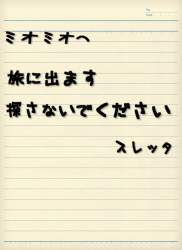 ミオミオへ
旅に出ます
探さないでください
スレッタ